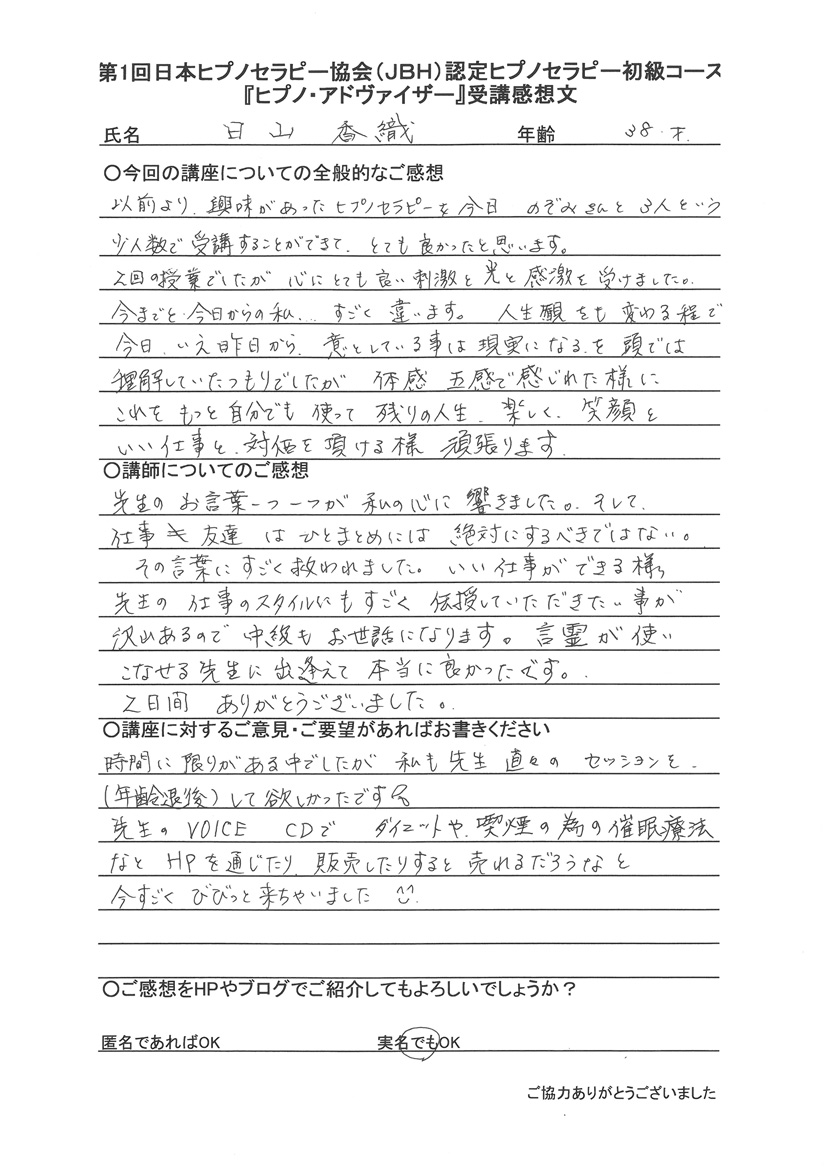 第1回日本ヒプノセラピー協会(JBH)認定ヒプノセラピー初級コース
『ヒプノ・アドヴァイザー』受講感想文
氏名 日山 香織 年齢 38才.
〇今回の講座についての全般的なご感想
以前より、興味があったヒプノセラピーを今日 のぞみさんと3人という
少人数で受講することができて、とても良かったと思います。
2回の授業でしたが 心にとても良い刺激と光と感激を受けました。
今までと、今日からの私... すごく違います。 人生観をも変わる程で
今日、いえ昨日から、意としている事は現実になる、を頭では
理解していたつもりでしたが 体感 五感で感じれた様に
これをもっと自分でも使って残りの人生、楽しく、笑顔を
いい仕事と、対価を頂ける様 頑張ります.
〇講師についてのご感想
先生のお言葉一つ一つが私の心に響きました。そして、
仕事≠友達 はひとまとめには絶対にするべきではない。
その言葉にすごく救われました。いい仕事ができる様、
先生の仕事のスタイルにもすごく伝授していただきたい事が
沢山あるので中級もお世話になります。言霊が使い
こなせる先生に出逢えて本当に良かったです。
2日間 ありがとうございました。
〇講座に対するご意見・ご要望があればお書きください
時間に限りがある中でしたが 私も先生直々のセッションを、
(年齢退後)して欲しかったです
先生のVOICE CDで ダイエットや、喫煙の為の催眠療法
なと HPを通じたり、販売したりすると売れるだろうなと
今すごくびびっと来ちゃいました
〇ご感想をHPやブログでご紹介してもよろしいでしょうか?
匿名であればOK 実名でもOK
ご協力ありがとうございました